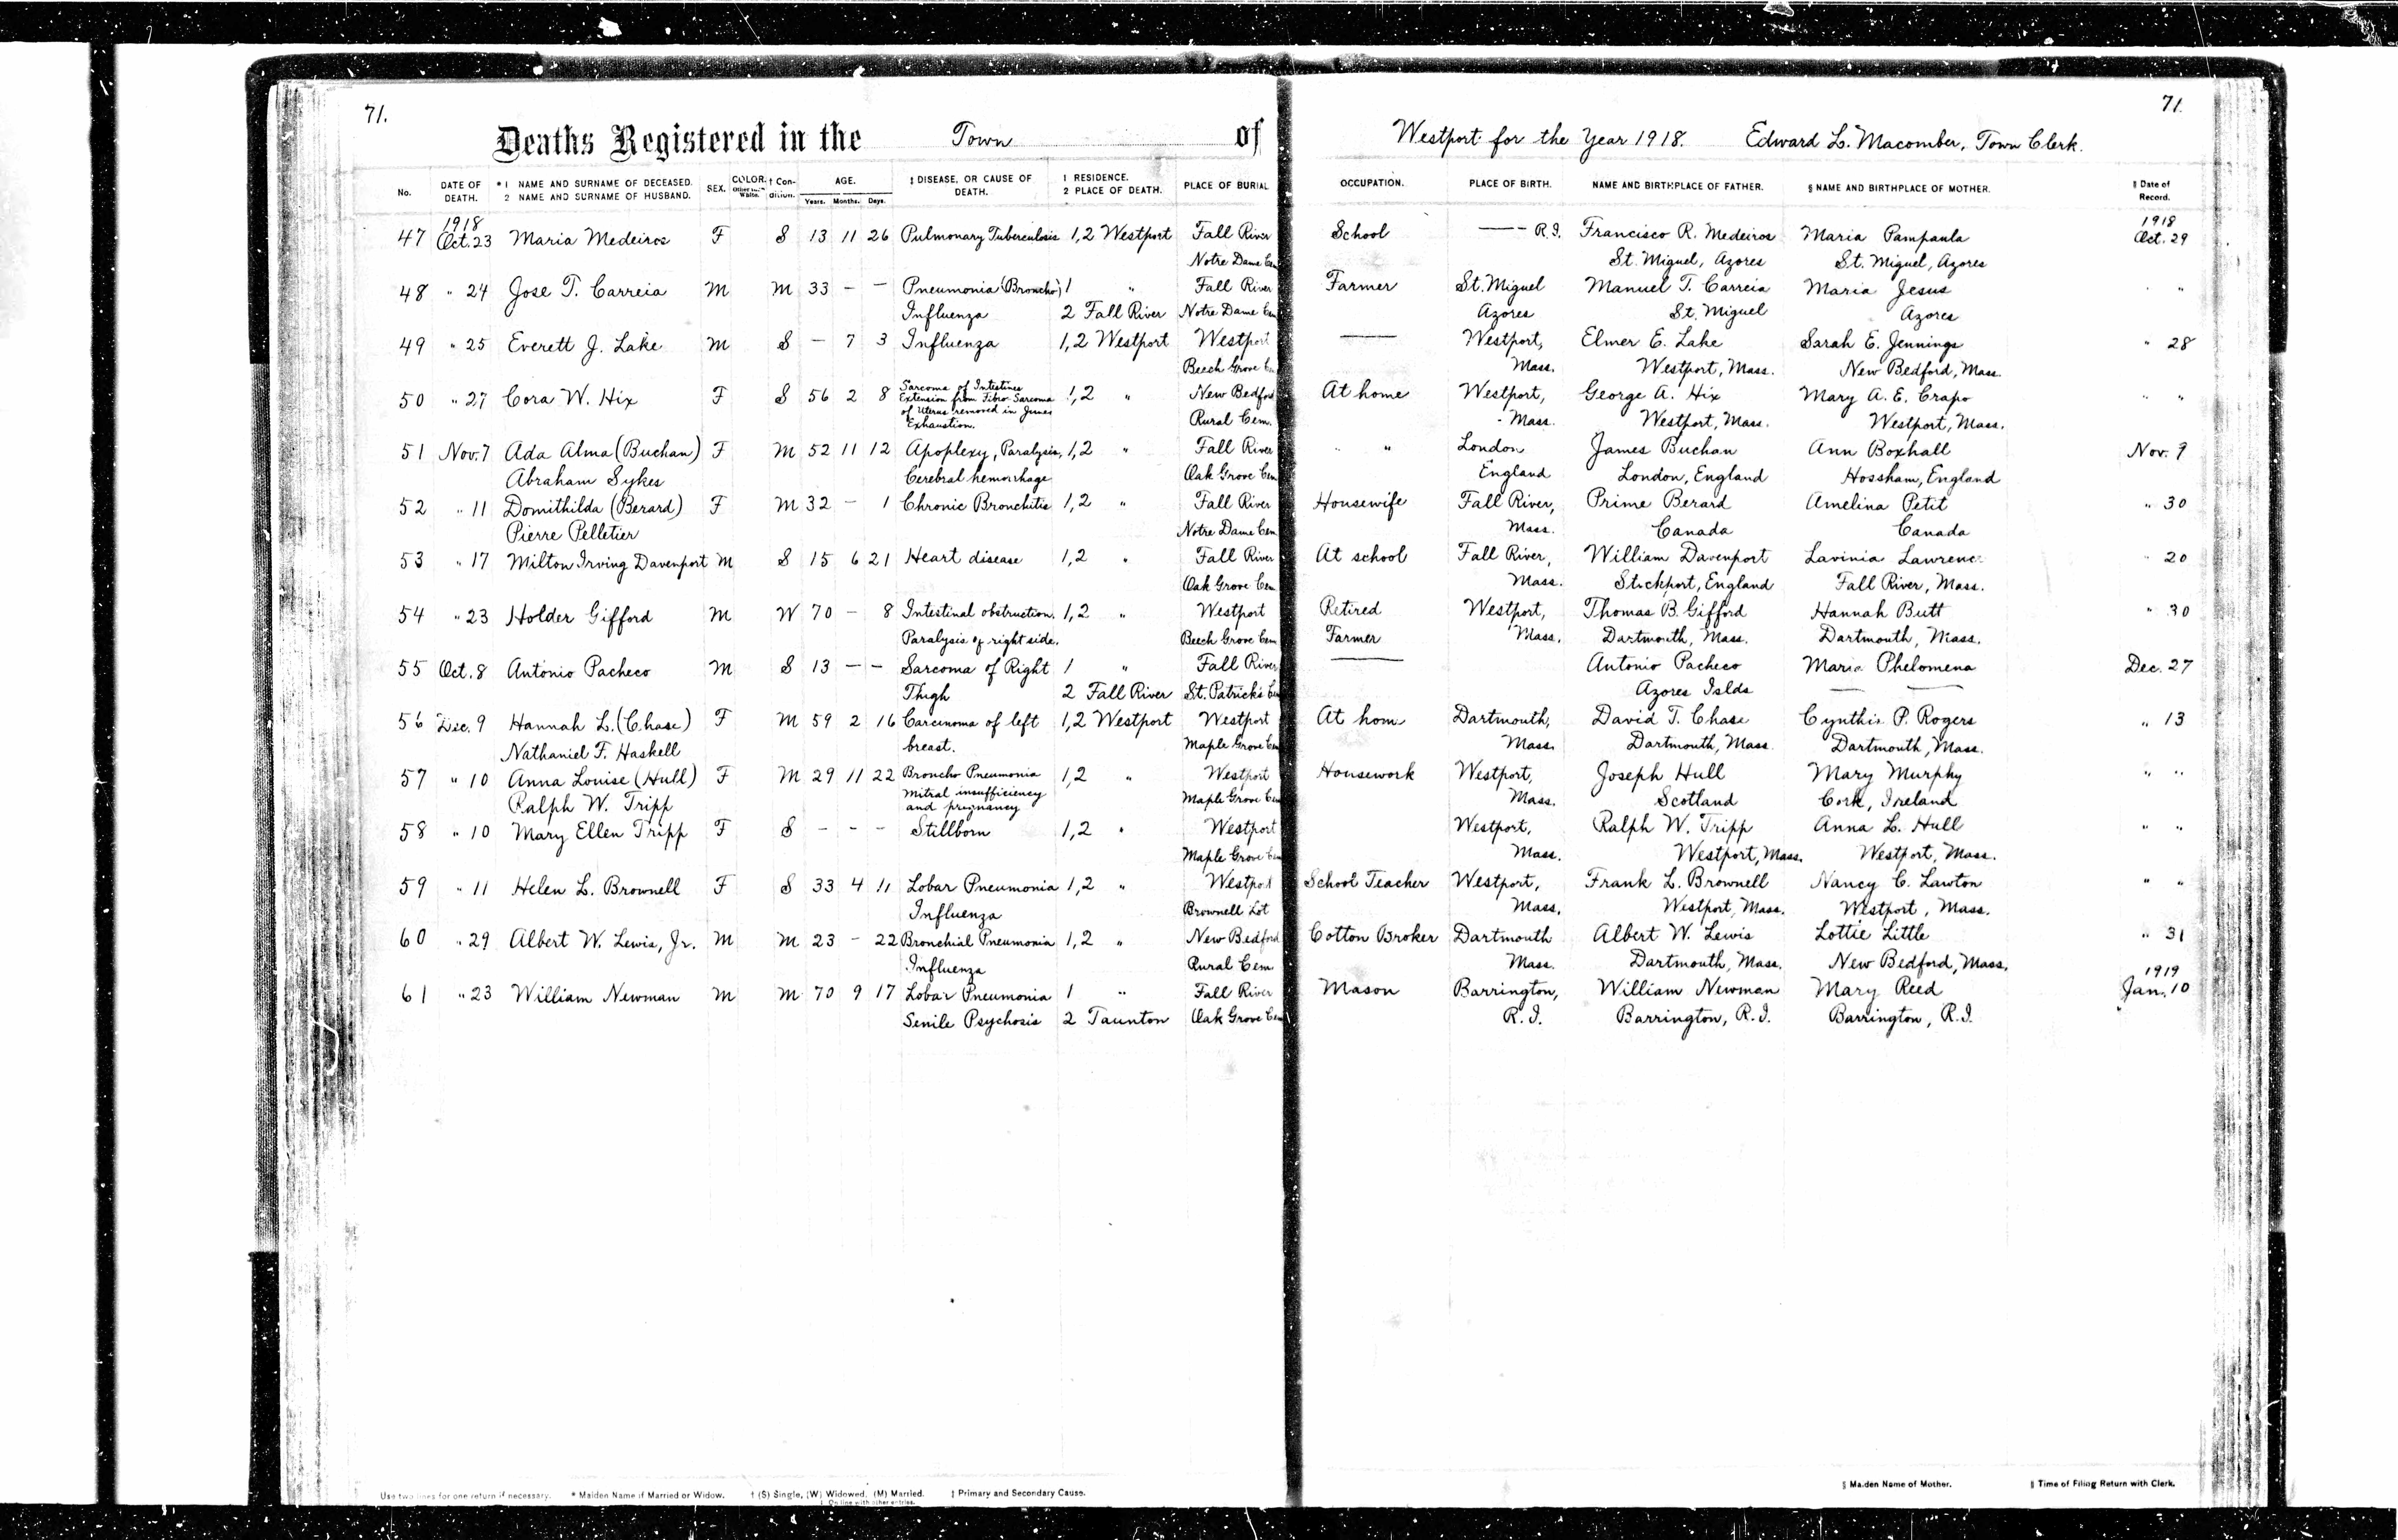 71. 71.
Deaths Registered in the Town of Westport for the Year 1918. Edward L. Macomber, Town Clerk.
No. DATE OF DEATH. * 1 NAME AND SURNAME OF DECEASED. 2 NAME AND SURNAME OF HUSBAND. SEX. COLOR. Other than White. † Condition. AGE. Years. Months. Days. ‡ DISEASE, OR CAUSE OF DEATH. 1 RESIDENCE. 2 PLACE OF DEATH. PLACE OF BURIAL OCCUPATION. PLACE OF BIRTH. NAME AND BIRTHPLACE OF FATHER. § NAME AND BIRTHPLACE OF MOTHER. ‖ Date of Record.
1918 1918
47 Oct. 23 Maria Medeiros F S 13 11 26 Pulmonary Tuberculosis 1,2 Westport Fall River School —— R.I. Francisco R. Medeiros Maria Pampaula Oct. 29
Notre Dame Cem St. Miguel, Azores St. Miguel, Azores
48 " 24 Jose T. Carreia M M 33 - - Pneumonia (Broncho) 1 " Fall River Farmer St. Miguel Manuel T. Carreia Maria Jesus " "
Influenza 2 Fall River Notre Dame Cem Azores St. Miguel Azores
49 " 25 Everett J. Lake M S - 7 3 Influenza 1,2 Westport Westport —— Westport, Elmer E. Lake Sarah E. Jennings " 28
Beech Grove Cem Mass. Westport, Mass. New Bedford, Mass.
50 " 27 Cora W. Hix F S 56 2 8 Sarcoma of Intestines Extension from Fibro-Sarcoma of Uterus removed in June Exhaustion. 1,2 " New Bedford At home Westport, George A. Hix Mary A. E. Crapo " "
Rural Cem. Mass. Westport, Mass. Westport, Mass.
51 Nov. 7 Ada Alma (Buchan) F M 52 11 12 Apoplexy, Paralysis, 1,2 " Fall River " " London James Buchan Ann Boxhall Nov. 9
Abraham Sykes Cerebral hemorrhage Oak Grove Cem England London, England Hossham, England
52 " 11 Domithilda (Berard) F M 32 - 1 Chronic Bronchitis 1,2 " Fall River Housewife Fall River, Prime Berard Amelina Petit " 30
Pierre Pelletier Notre Dame Cem Mass. Canada Canada
53 " 17 Milton Irving Davenport M S 15 6 21 Heart disease 1,2 " Fall River At school Fall River, William Davenport Lavinia Lawrence " 20
Oak Grove Cem Mass. Stockport, England Fall River, Mass.
54 " 23 Holder Gifford M W 70 - 8 Intestinal obstruction. 1,2 " Westport Retired Westport, Thomas B. Gifford Hannah Butt " 30
Paralysis of right side. Beech Grove Cem Farmer Mass. Dartmouth, Mass. Dartmouth, Mass.
55 Oct. 8 Antonio Pacheco M S 13 - - Sarcoma of Right 1 " Fall River —— Antonio Pacheco Maria Phelomena Dec. 27
Thigh 2 Fall River St. Patrick's Cem Azores Islds — —
56 Dec. 9 Hannah L. (Chase) F M 59 2 16 Carcinoma of left 1,2 Westport Westport At home Dartmouth, David T. Chase Cynthia P. Rogers " 13
Nathaniel F. Haskell breast. Maple Grove Cem Mass. Dartmouth, Mass. Dartmouth, Mass.
57 " 10 Anna Louise (Hull) F M 29 11 22 Broncho Pneumonia 1,2 " Westport Housework Westport, Joseph Hull Mary Murphy " "
Ralph W. Tripp Mitral insufficiency and pregnancy Maple Grove Cem Mass. Scotland Cork, Ireland
58 " 10 Mary Ellen Tripp F S - - - Stillborn 1,2 " Westport Westport, Ralph W. Tripp Anna L. Hull " "
Maple Grove Cem Mass. Westport, Mass. Westport, Mass.
59 " 11 Helen L. Brownell F S 33 4 11 Lobar Pneumonia 1,2 " Westport School Teacher Westport, Frank L. Brownell Nancy C. Lawton " "
Influenza Brownell Lot Mass. Westport, Mass. Westport, Mass.
60 " 29 Albert W. Lewis, Jr. M M 23 - 22 Bronchial Pneumonia 1,2 " New Bedford Cotton Broker Dartmouth Albert W. Lewis Lottie Little " 31
Influenza Rural Cem. Mass. Dartmouth, Mass. New Bedford, Mass. 1919
61 " 23 William Newman M M 70 9 17 Lobar Pneumonia 1 " Fall River Mason Barrington, William Newman Mary Reed Jan. 10
Senile Psychosis 2 Taunton Oak Grove Cem R.I. Barrington, R.I. Barrington, R.I.
Use two lines for one return if necessary. * Maiden Name if Married or Widow. † (S) Single, (W) Widowed, (M) Married. ‡ Primary and Secondary Cause. § Maiden Name of Mother. ‖ Time of Filing Return with Clerk.